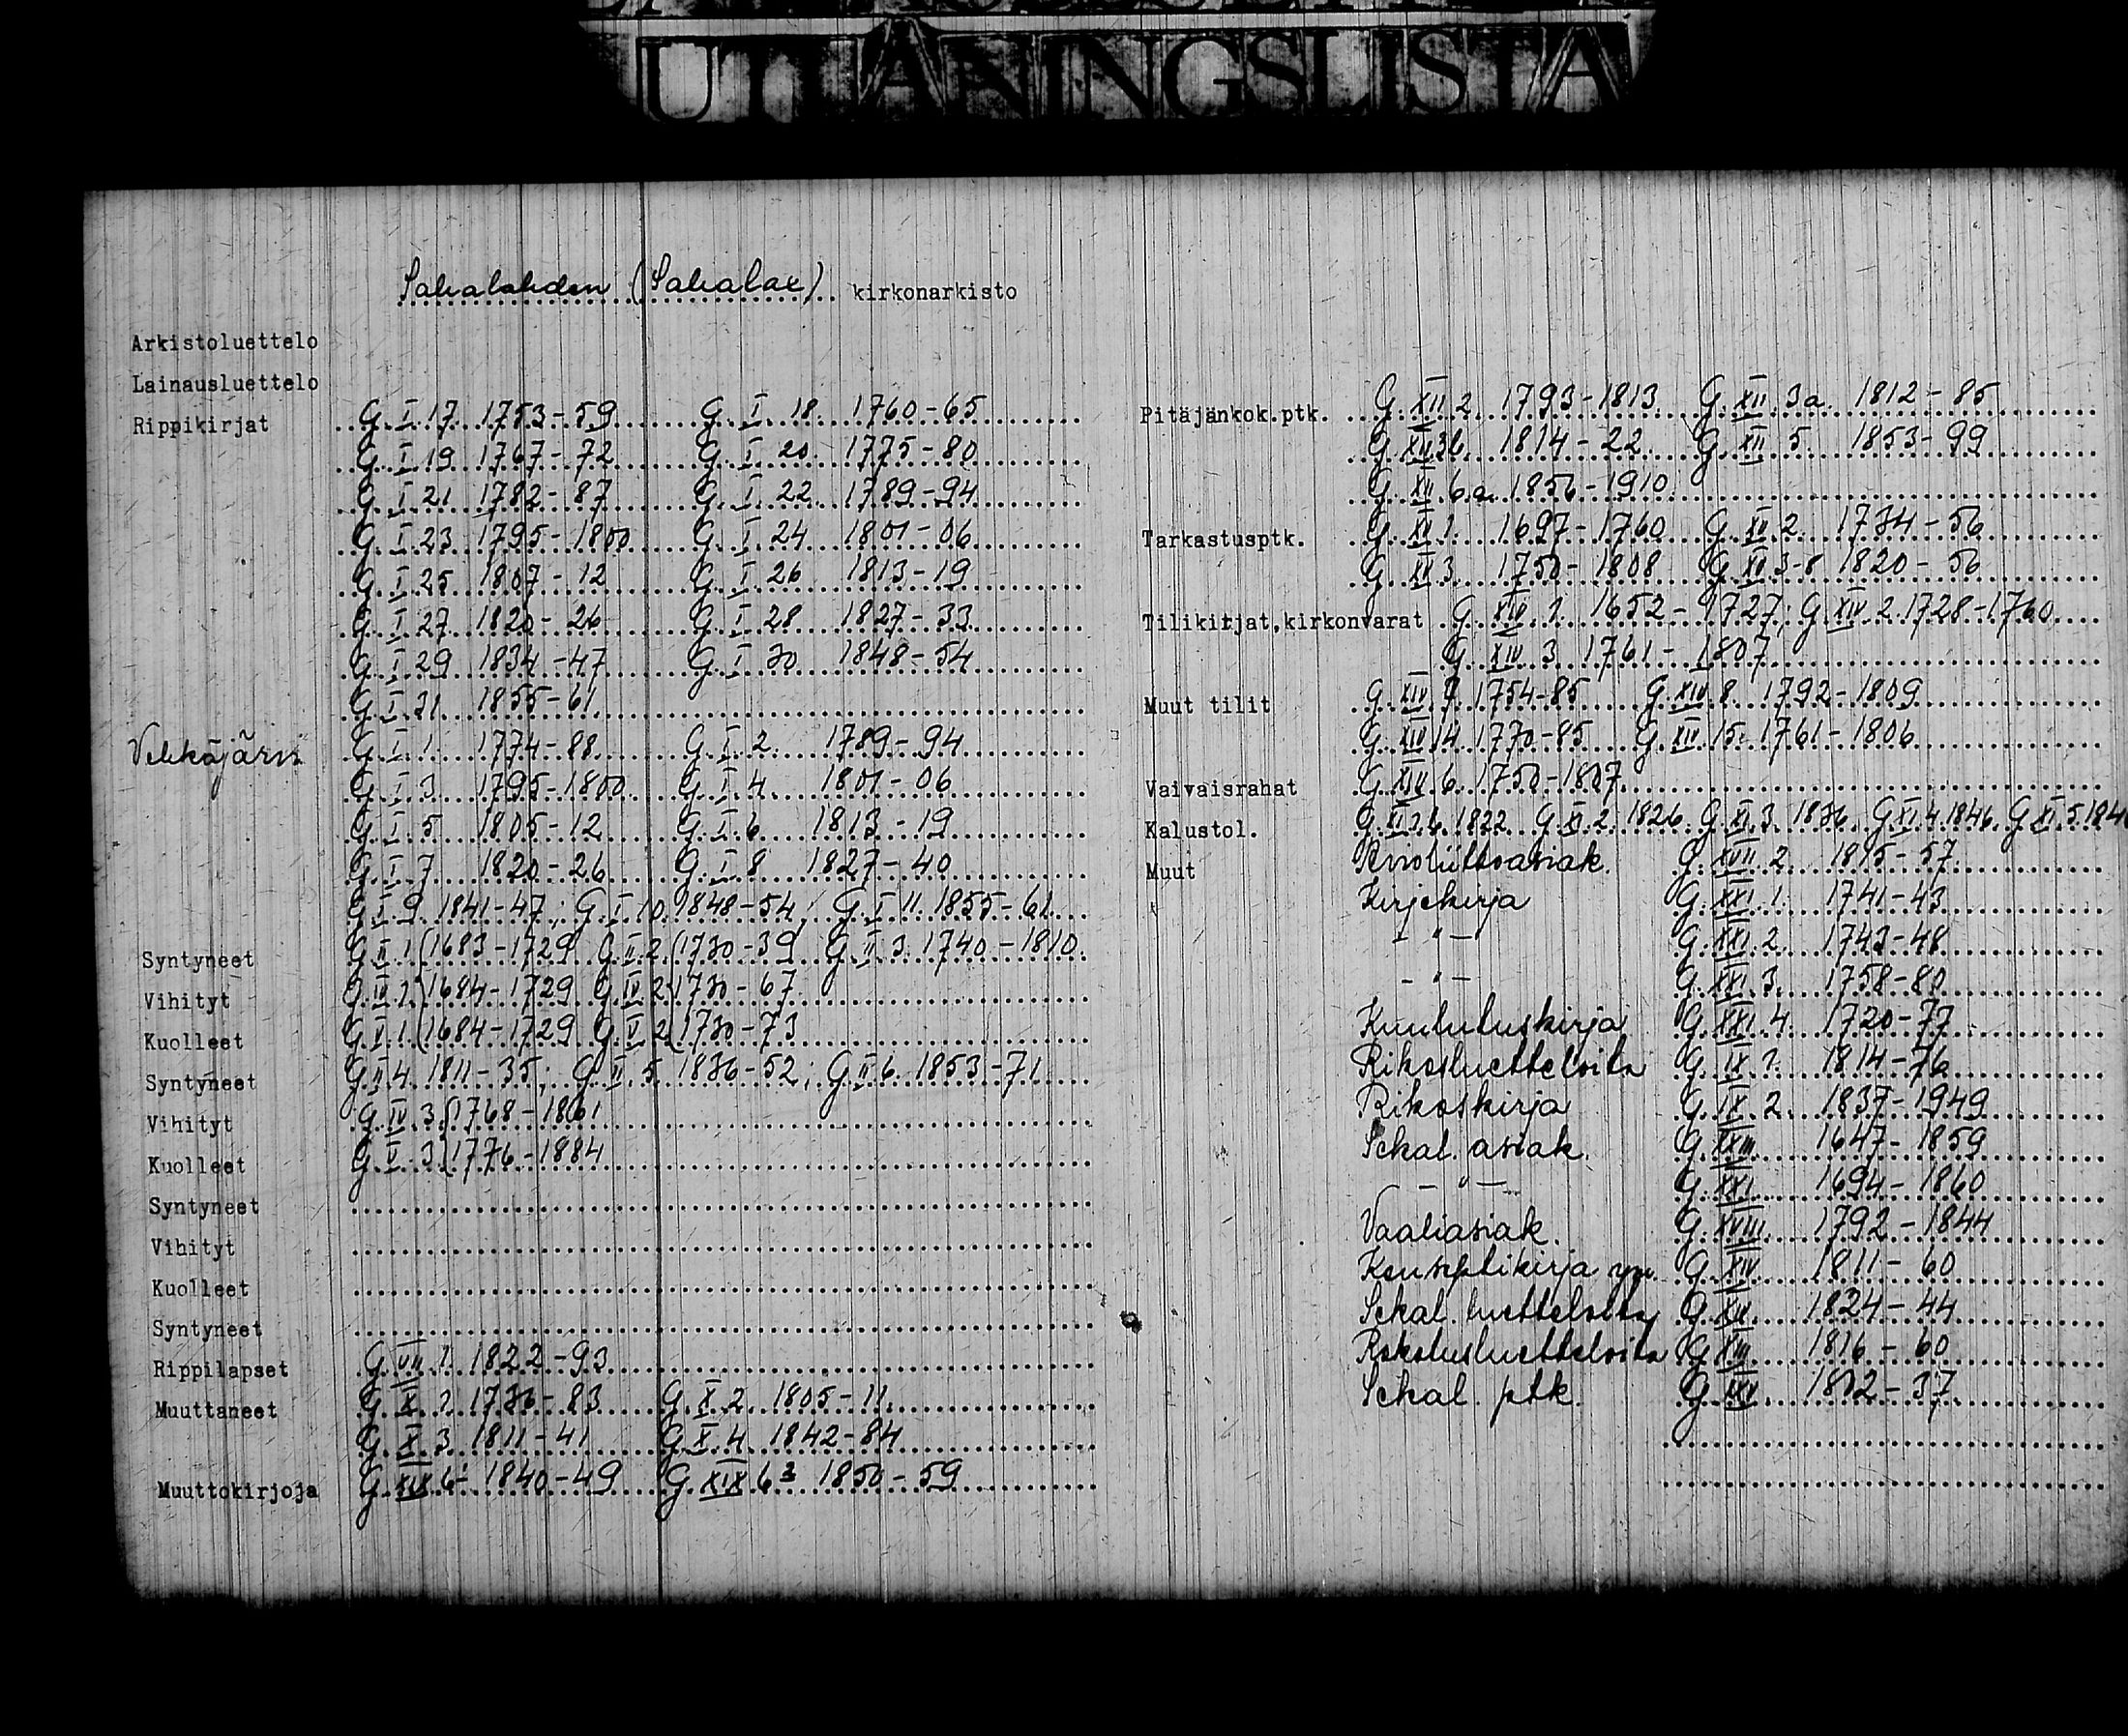 UTLÅNINGSLISTA
Sahalahden (Sahalax) kirkonarkisto
Arkistoluettelo
Lainausluettelo
Rippikirjat G. I. 17. 1753-59 G. I. 18. 1760-65
G. I. 19 1767-72 G. I. 20. 1775-80
G. I. 21 1782-87 G. I. 22. 1789-94
G. I. 23 1795-1800 G. I. 24 1801-06
G. I. 25 1807-12 G. I. 26 1813-19
G. I. 27 1820-26 G. I. 28 1827-33
G. I. 29 1834-47 G. I. 30 1848-54
G. I. 31 1855-61
Vehkäjärvi G. I. 1. 1774-88 G. I. 2. 1789-94
G. I. 3 1795-1800 G. I. 4 1801-06
G. I. 5 1805-12 G. I. 6 1813-19
G. I. 7 1820-26 G. I. 8 1827-40
G. I. 9 1841-47; G. I. 10 1848-54; G. I. 11. 1855-61
Syntyneet G. II. 1. (1683-1729 G. II. 2. (1730-39 G. II. 3. 1740-1810
Vihityt 1684-1729 1730-67
Kuolleet G. V. 1. (1684-1729 G. V. 2. (1730-73
Syntyneet G. II. 4. 1811-35; G. II. 5 1836-52; G. II. 6. 1853-71
Vihityt G. IV. 3. (1768-1861
Kuolleet G. V. 3. (1776-1884
Syntyneet
Vihityt
Kuolleet
Syntyneet
Rippilapset G. VII. 1. 1822-93
Muuttaneet G. X. 1. 1736-83 G. X. 2. 1805-11
G. X. 3 1811-41 G. X. 4. 1842-84
Muuttokirjoja G. XIX 6 1840-49 G. XIX 6 1850-59
Pitäjänkok.ptk. G. XII. 2. 1793-1813 G. XII. 3a. 1812-85
G. XII. 3b 1814-22 G. XII. 5. 1853-99
G. XII. 6.a. 1856-1910
Tarkastusptk. 1697-1760 1734-56
1750-1808 1820-56
Tilikirjat,kirkonvarat G. XIV. 1. 1652-1727; G. XIV. 2. 1728-1760
G. XIV. 3 1761-1807
Muut tilit G. XIV. 7 1754-85 G. XIV. 8. 1792-1809
G. XIV. 14. 1770-85 G. XIV. 15. 1761-1806
Vaivaisrahat G. XIV. 6. 1750-1807
Kalustol. 1822 G. XI. 2. 1826 G. XI. 3. 1836 G. XI. 4. 1846 G. XI. 5.
Muut Avioliittoasiak. G. XVII. 2. 1815-57
Kirjekirja G. XXI. 1. 1741-43
-"- G. XXI. 2. 1743-48
-"- G. XXI. 3. 1758-80
Kuulutuskirja G. XXI. 4. 1720-77
Rikosluetteloita G. IX. 1. 1814-76
Rikoskirja G. IX. 2. 1837-1949
Sekal. asiak. 1647-1859
-"- G. XXI 1694-1860
Vaaliasiak. G. XVIII. 1792-1844
Konseptikirja ym. G. XIV 1811-60
Sekal. luetteloita 1824-44
Rokotusluetteloita 1816-60
Sekal. ptk. 1802-37